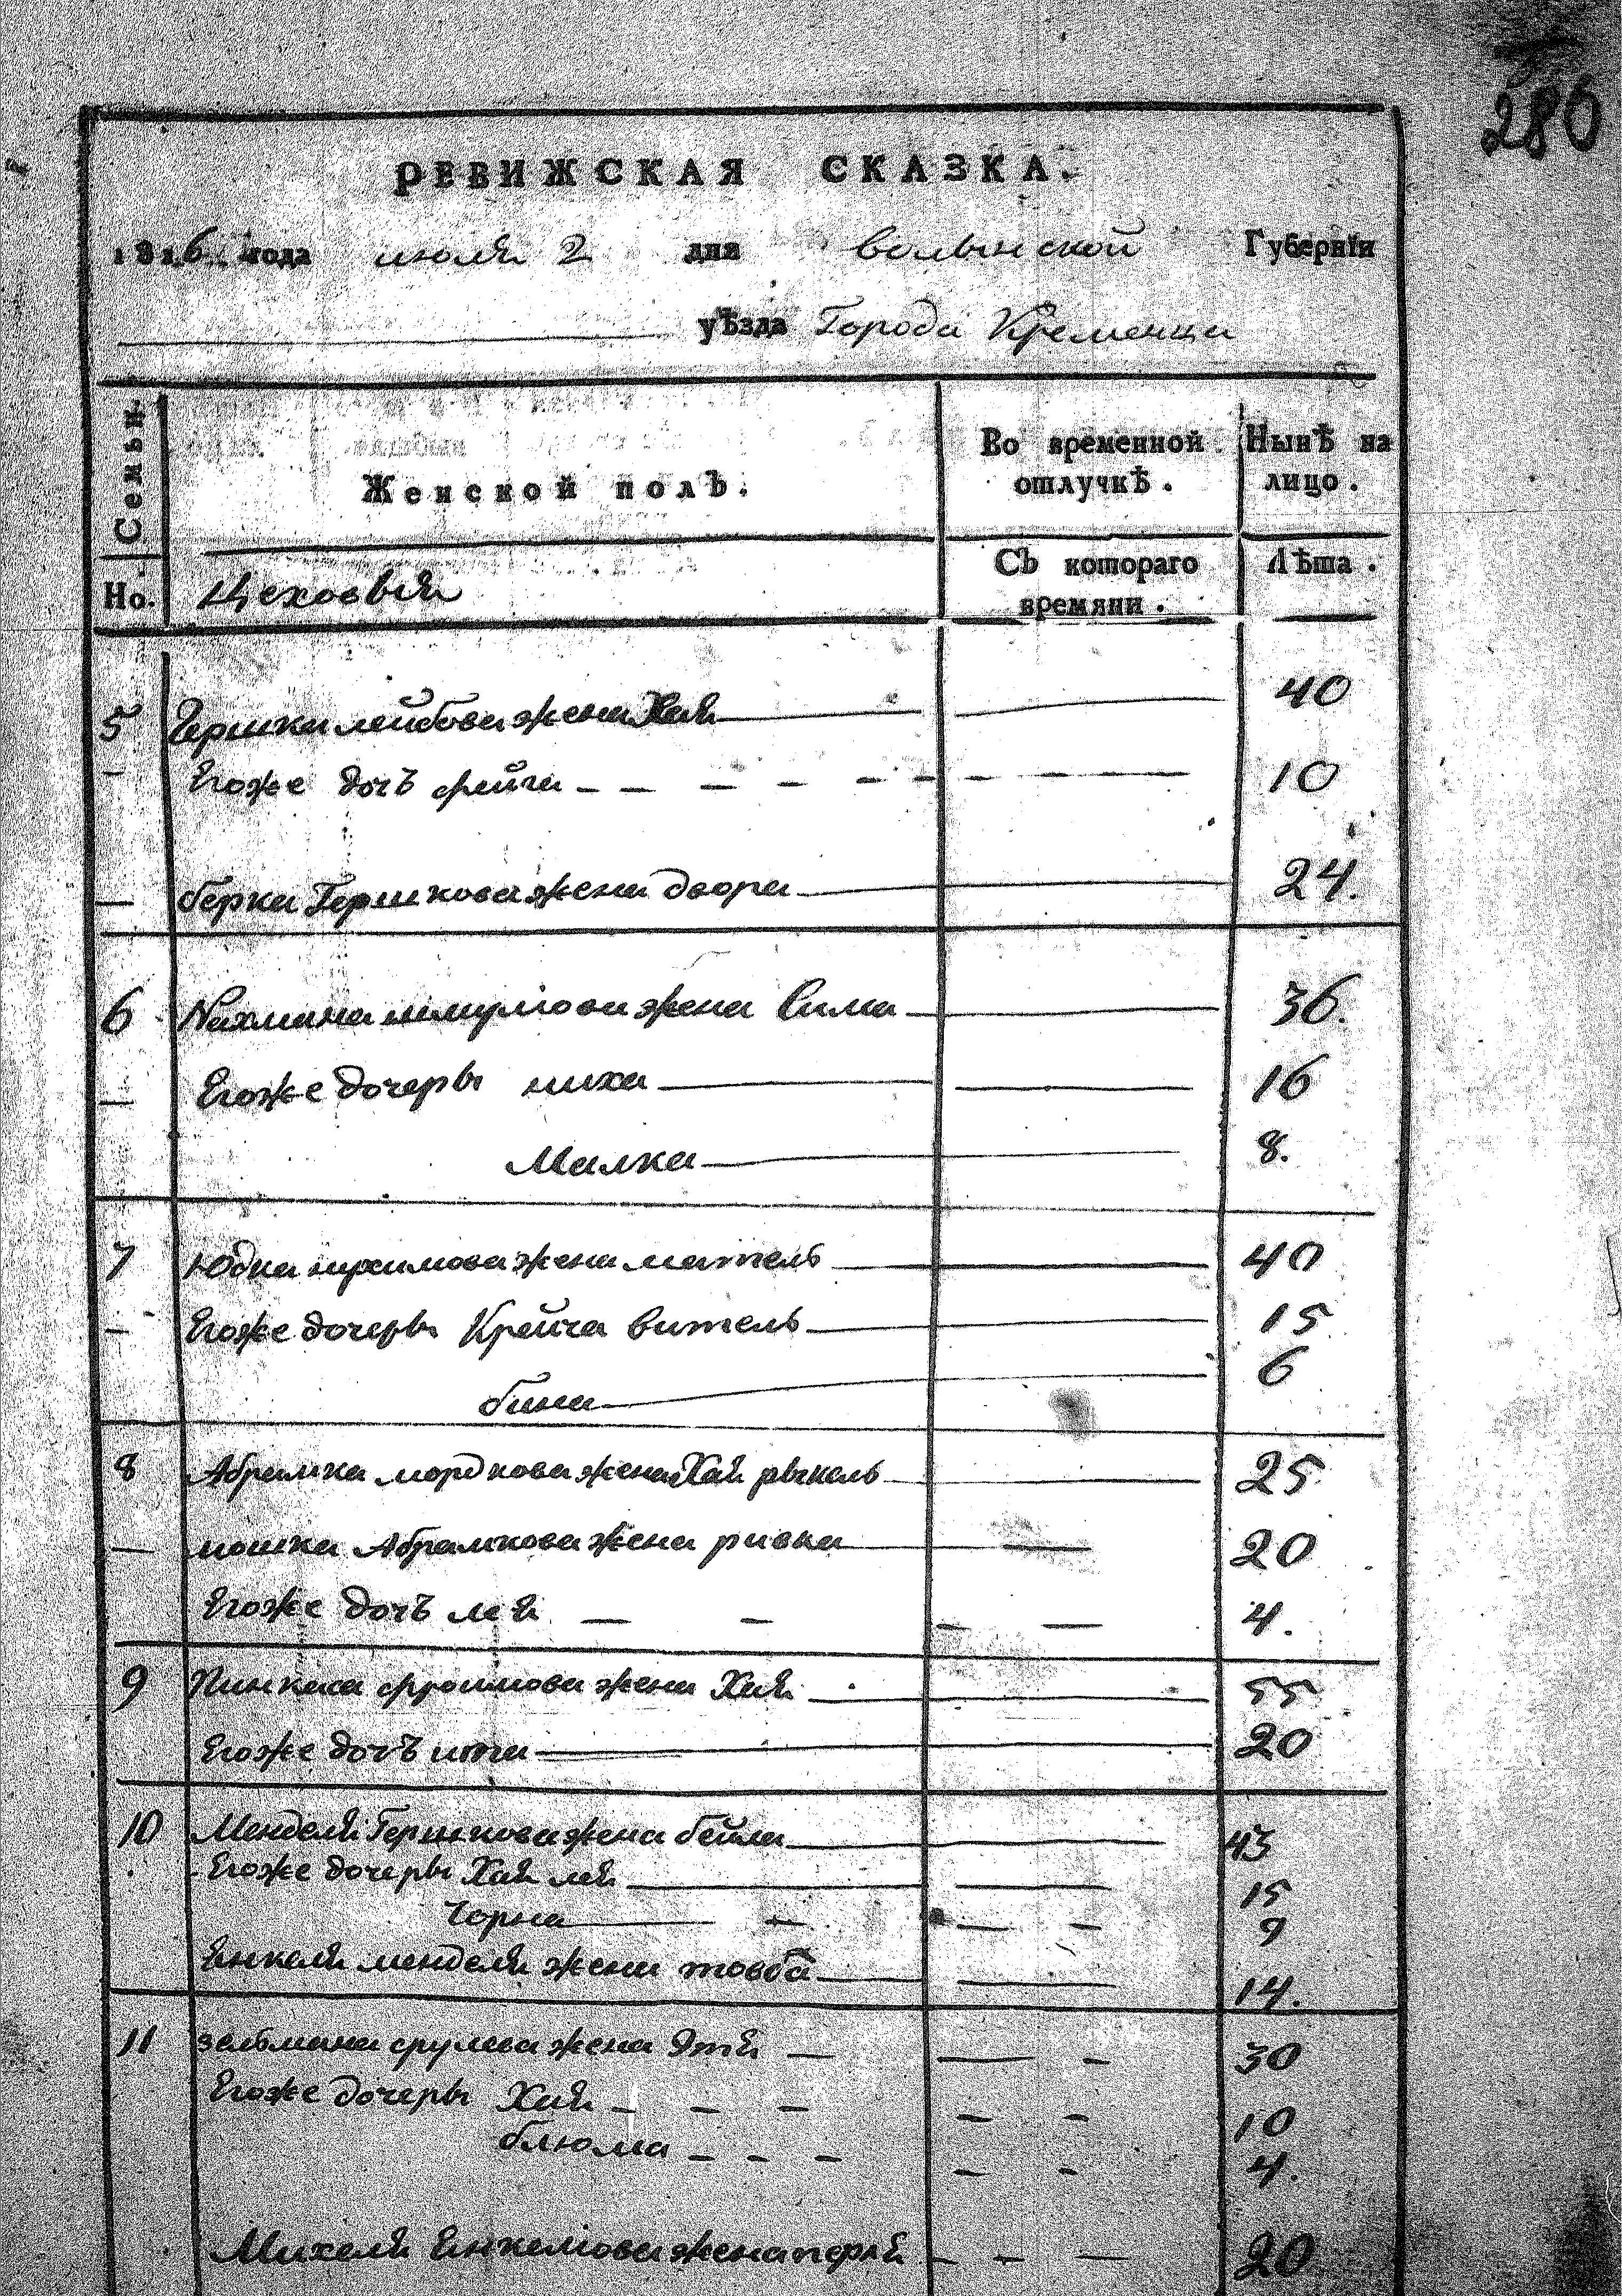 286
РЕВИЖСКАЯ СКАЗКА.
1816 года июля 2 дня волынской Губернїи
уѣзда Города Кременца
Семьи.
Женской полъ.
Во временной отлучкѣ.
Нынѣ на лицо.
Но.
Цеховыя
Съ котораго времяни.
Лѣта.
5 Гершка лейбова жена Хая 40
Егоже дочъ фейга 10
берка Гершкова жена двора 24.
6 Нахмана шмулiова жена Сима 36.
Егоже дочеры 16
Малка 8.
7 Юдка жена мател 40
Егоже дочеры Крейча витель 15
бина 6
8 Абрамка мордкова жена Хая рыкель 25
мошка Абрамкова жена ривка 20
Егоже дочъ лея 4.
9 Пинкаса фроимова жена Хая 55
Егоже дочъ ита 20
10 Менделя Гершкова жена бейла 43
Егоже дочеры Хая лея 15
Чорна 9
Енкеля менделя жена товба 14.
11 зельмана срулева жена Этя 30
Егоже дочеры Хая 10
блюма 4.
Михеля Енкелiова жена перля 20